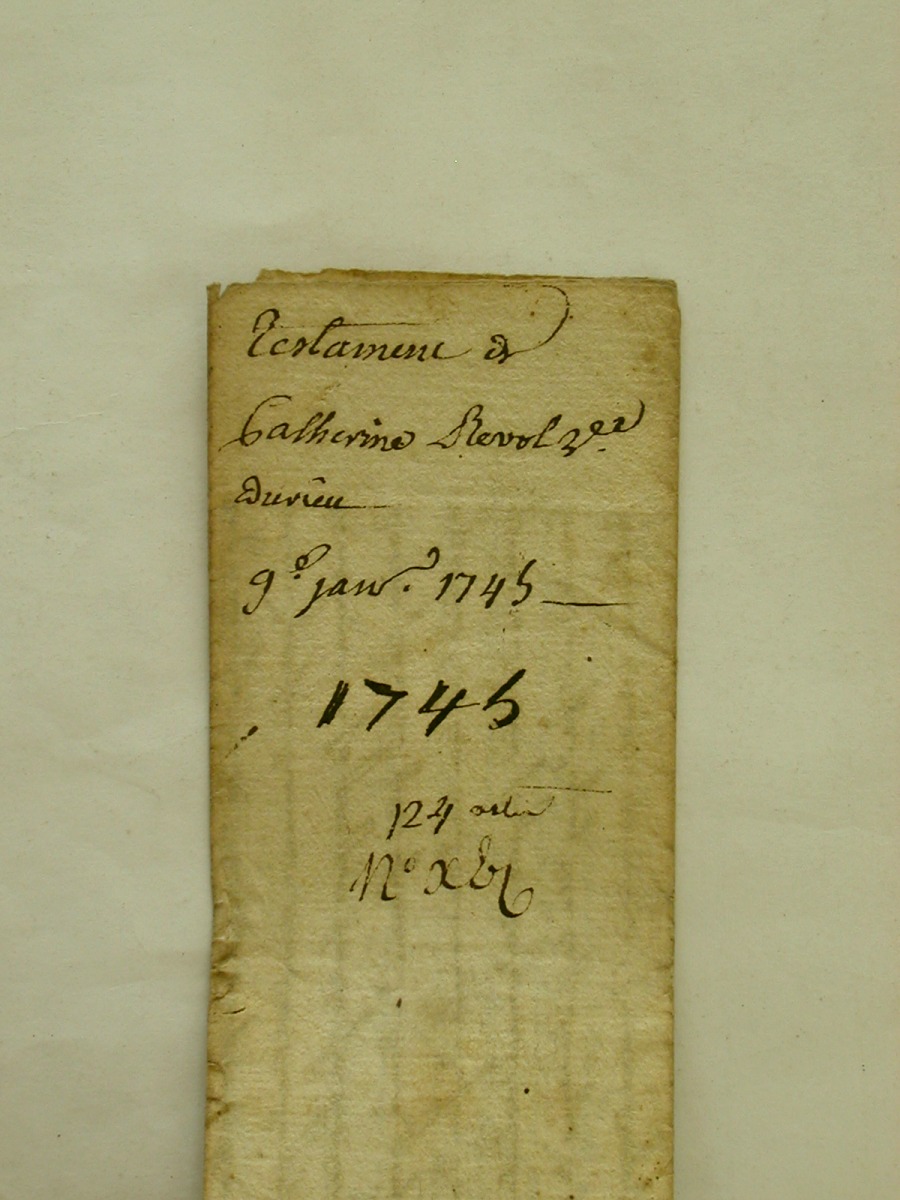 Testament de
Catherine Revol v.ee
durieu
9.e janv.r 1745
1745
124
N.o xbj